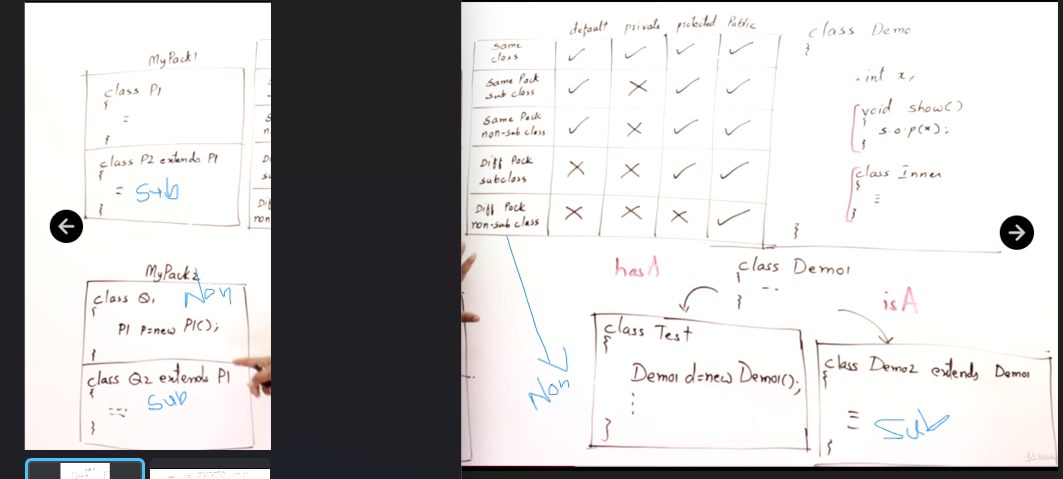 MyPack1
class P1
{
=
}
class P2 extends P1
{
= Sub
}
MyPack2
class Q1 Non
{
P1 p=new P1();
}
class Q2 extends P1
{
Sub
}
default private protected Public
Same
class ✓ ✓ ✓ ✓
Same Pack
sub class ✓ ✗ ✓ ✓
Same Pack
non-sub class ✓ ✗ ✓ ✓
Diff Pack
subclass ✗ ✗ ✓ ✓
Diff Pack
non-sub class ✗ ✗ ✗ ✓
Non
class Demo
{
int x,
void show()
{
s.o.p(x);
}
class Inner
{
}
}
hasA
class Demo1
{
}
isA
class Test
{
Demo1 d=new Demo1();
}
class Demo2 extends Demo1
{
Sub
}